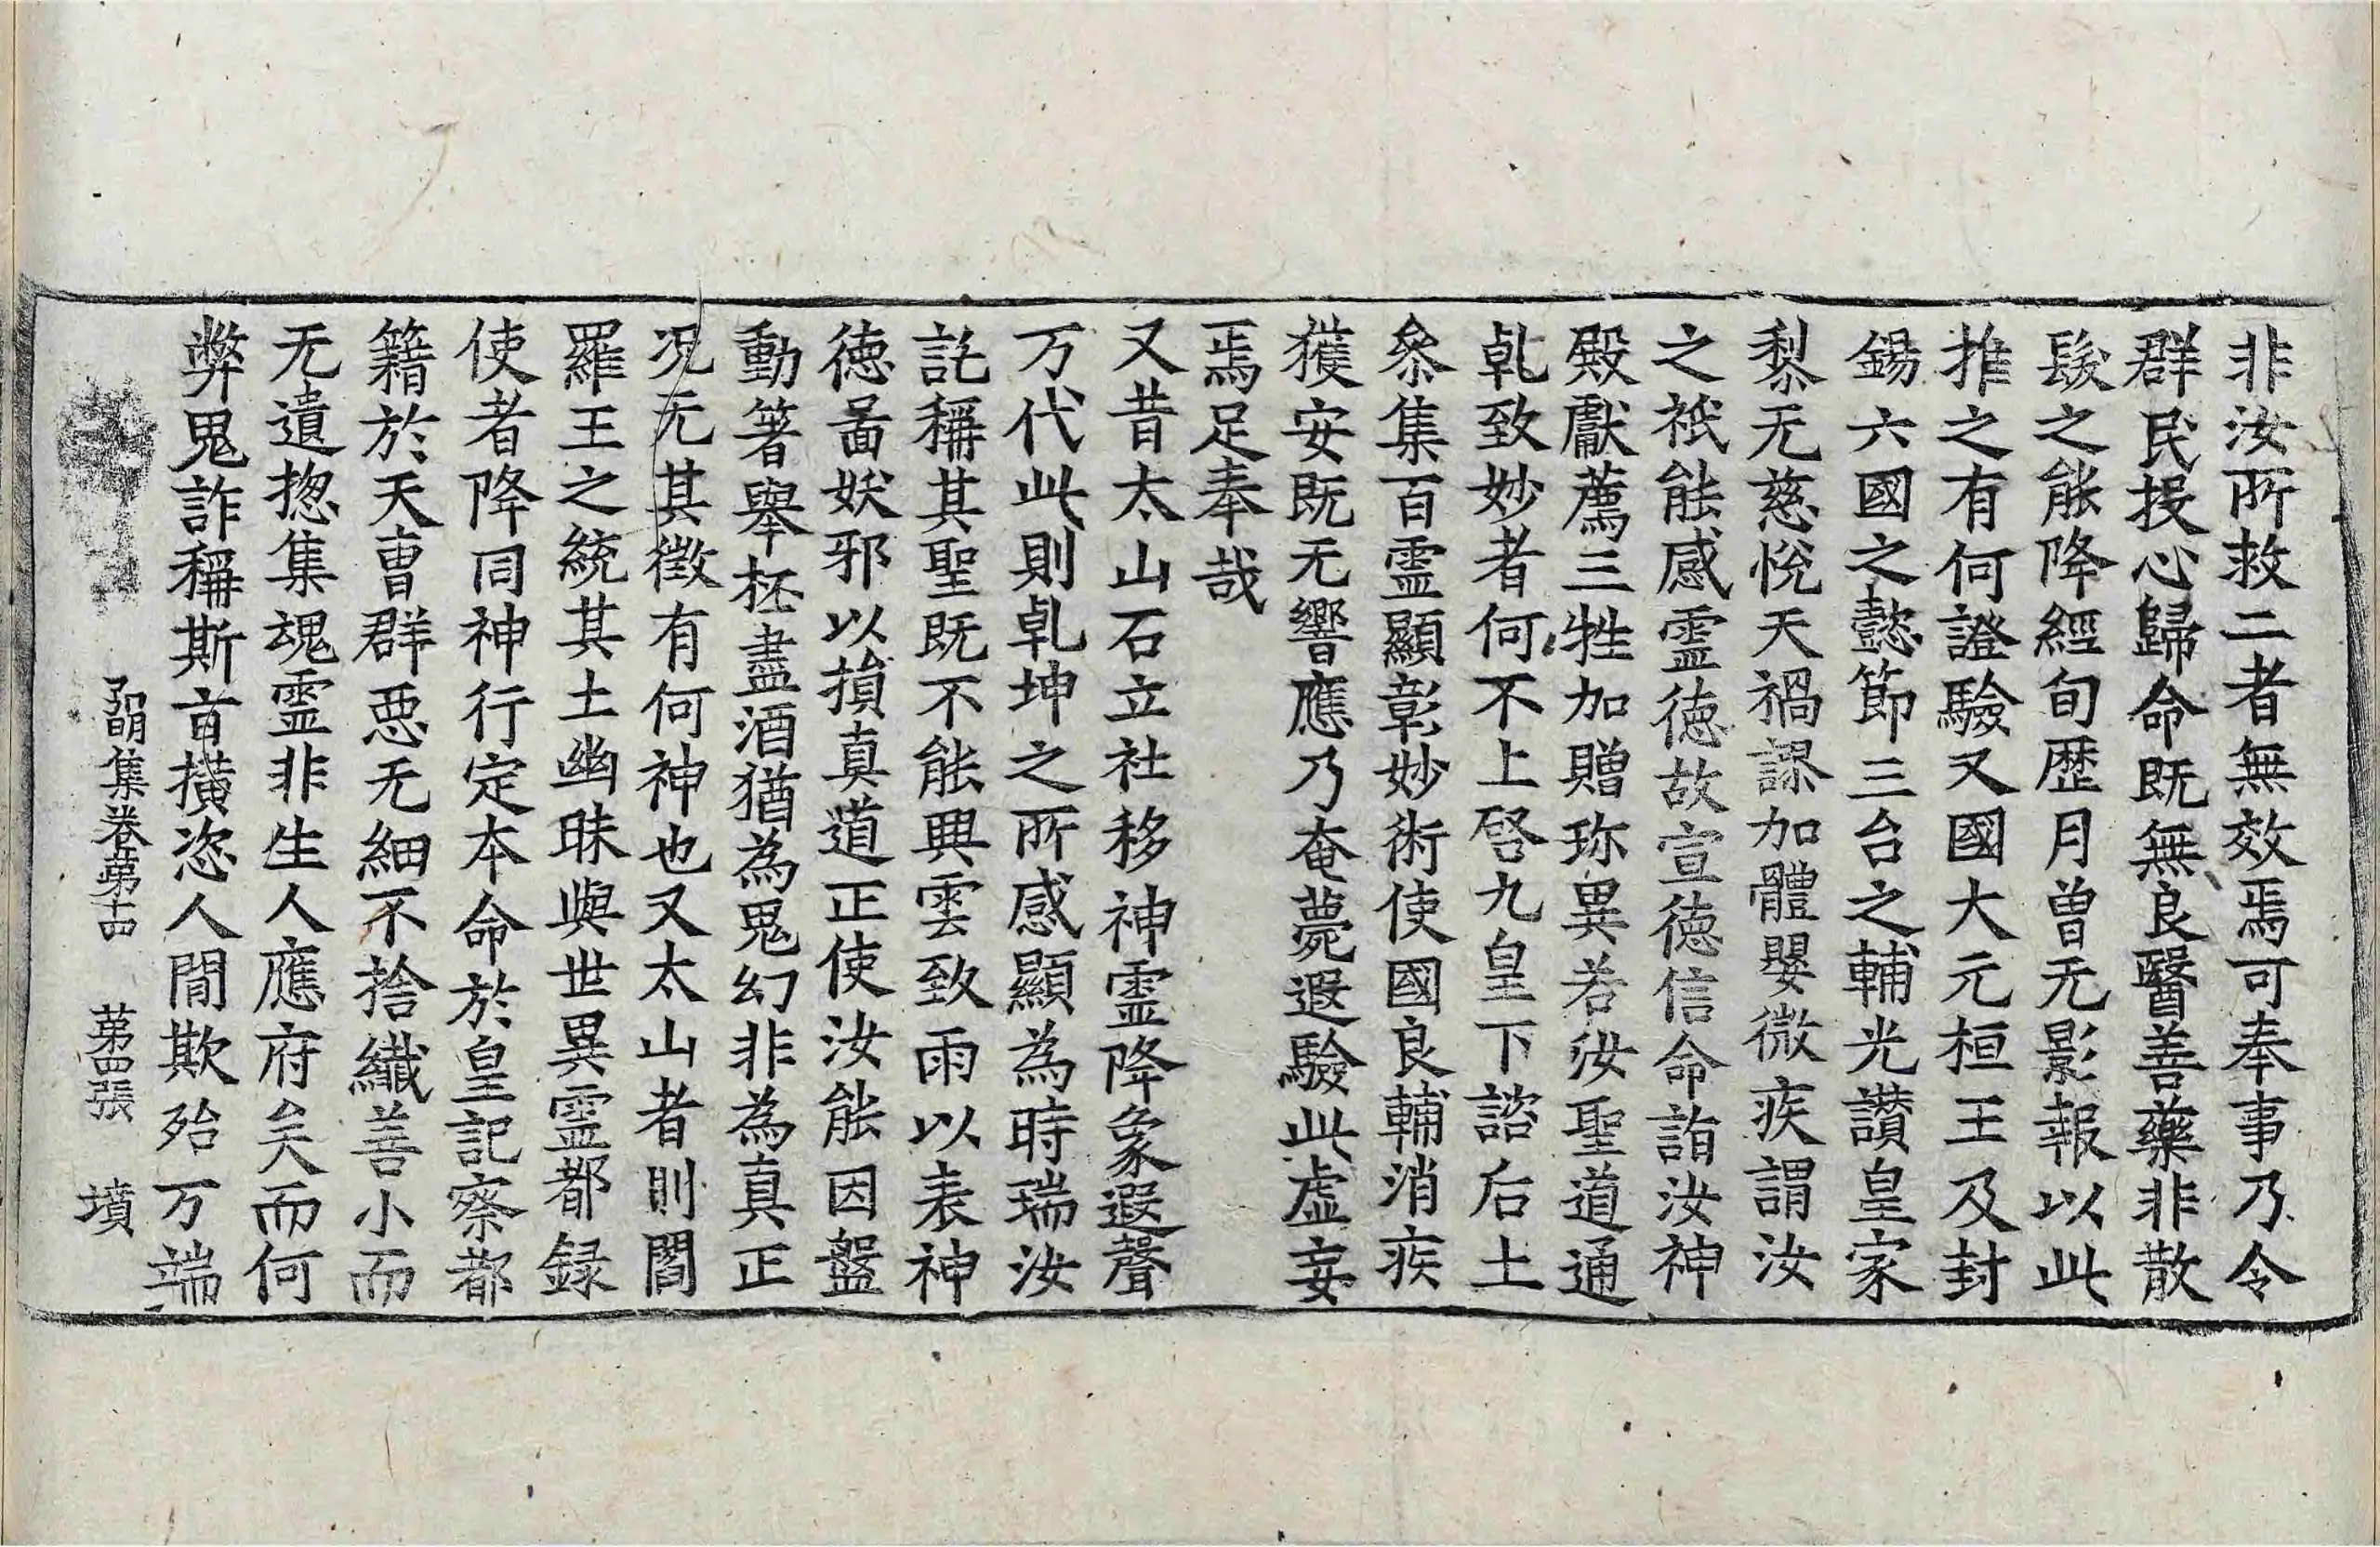 非汝所救二者無效焉可奉事乃令
群民投心歸命既無良醫善藥非散
髮之能降經旬歷月曾无影報以此
推之有何證驗又國大元桓王及封
錫六國之懿節三台之輔光讚皇家
㓼无慈悅天禍謬加體嬰微疾謂汝
之祇能感霊德故宣德信命詣汝神
殿獻薦三牲加贈珎異若汝聖道通
乹致妙者何不上啓九皇下諮后土
叅集百霊顯彰妙術使國良輔消疾
獲安既无響應乃奄薨遐驗此虛妄
焉足奉哉
又昔太山石立社移神霊降象遐聲
万代此則乹坤之所感顯為時瑞汝
託稱其聖既不能興雲致雨以表神
德啚妖邪以損真道正使汝能因盤
動箸舉桮盡酒猶為鬼幻非為真正
况无其徵有何神也又太山者則閻
羅王之統其土幽昧與世異霊都録
使者降同神行定本命於皇記察都
籍於天曹群惡无細不捨纖善小而
无遺揔集魂霊非生人應府矣而何
弊鬼詐稱斯音横恣人間欺殆万端
弘明集卷第十四　第四張　墳